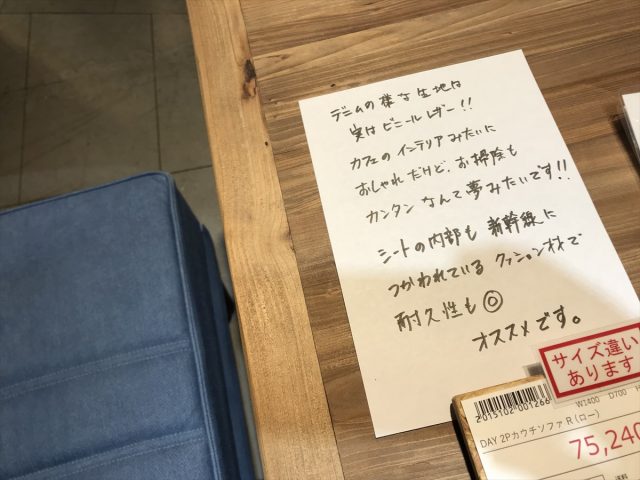 デニムの様な生地は
実はビニールレザー!!
カフェのインテリアみたいに
おしゃれだけど、お掃除も
カンタンなんて夢みたいです!!
シートの内部も新幹線に
つかわれているクッション材で
耐久性も◎
オススメです。
サイズ違い
あります
2015102 001266
W1400 D700
DAY 2PカウチソファR(ロー)
75,240